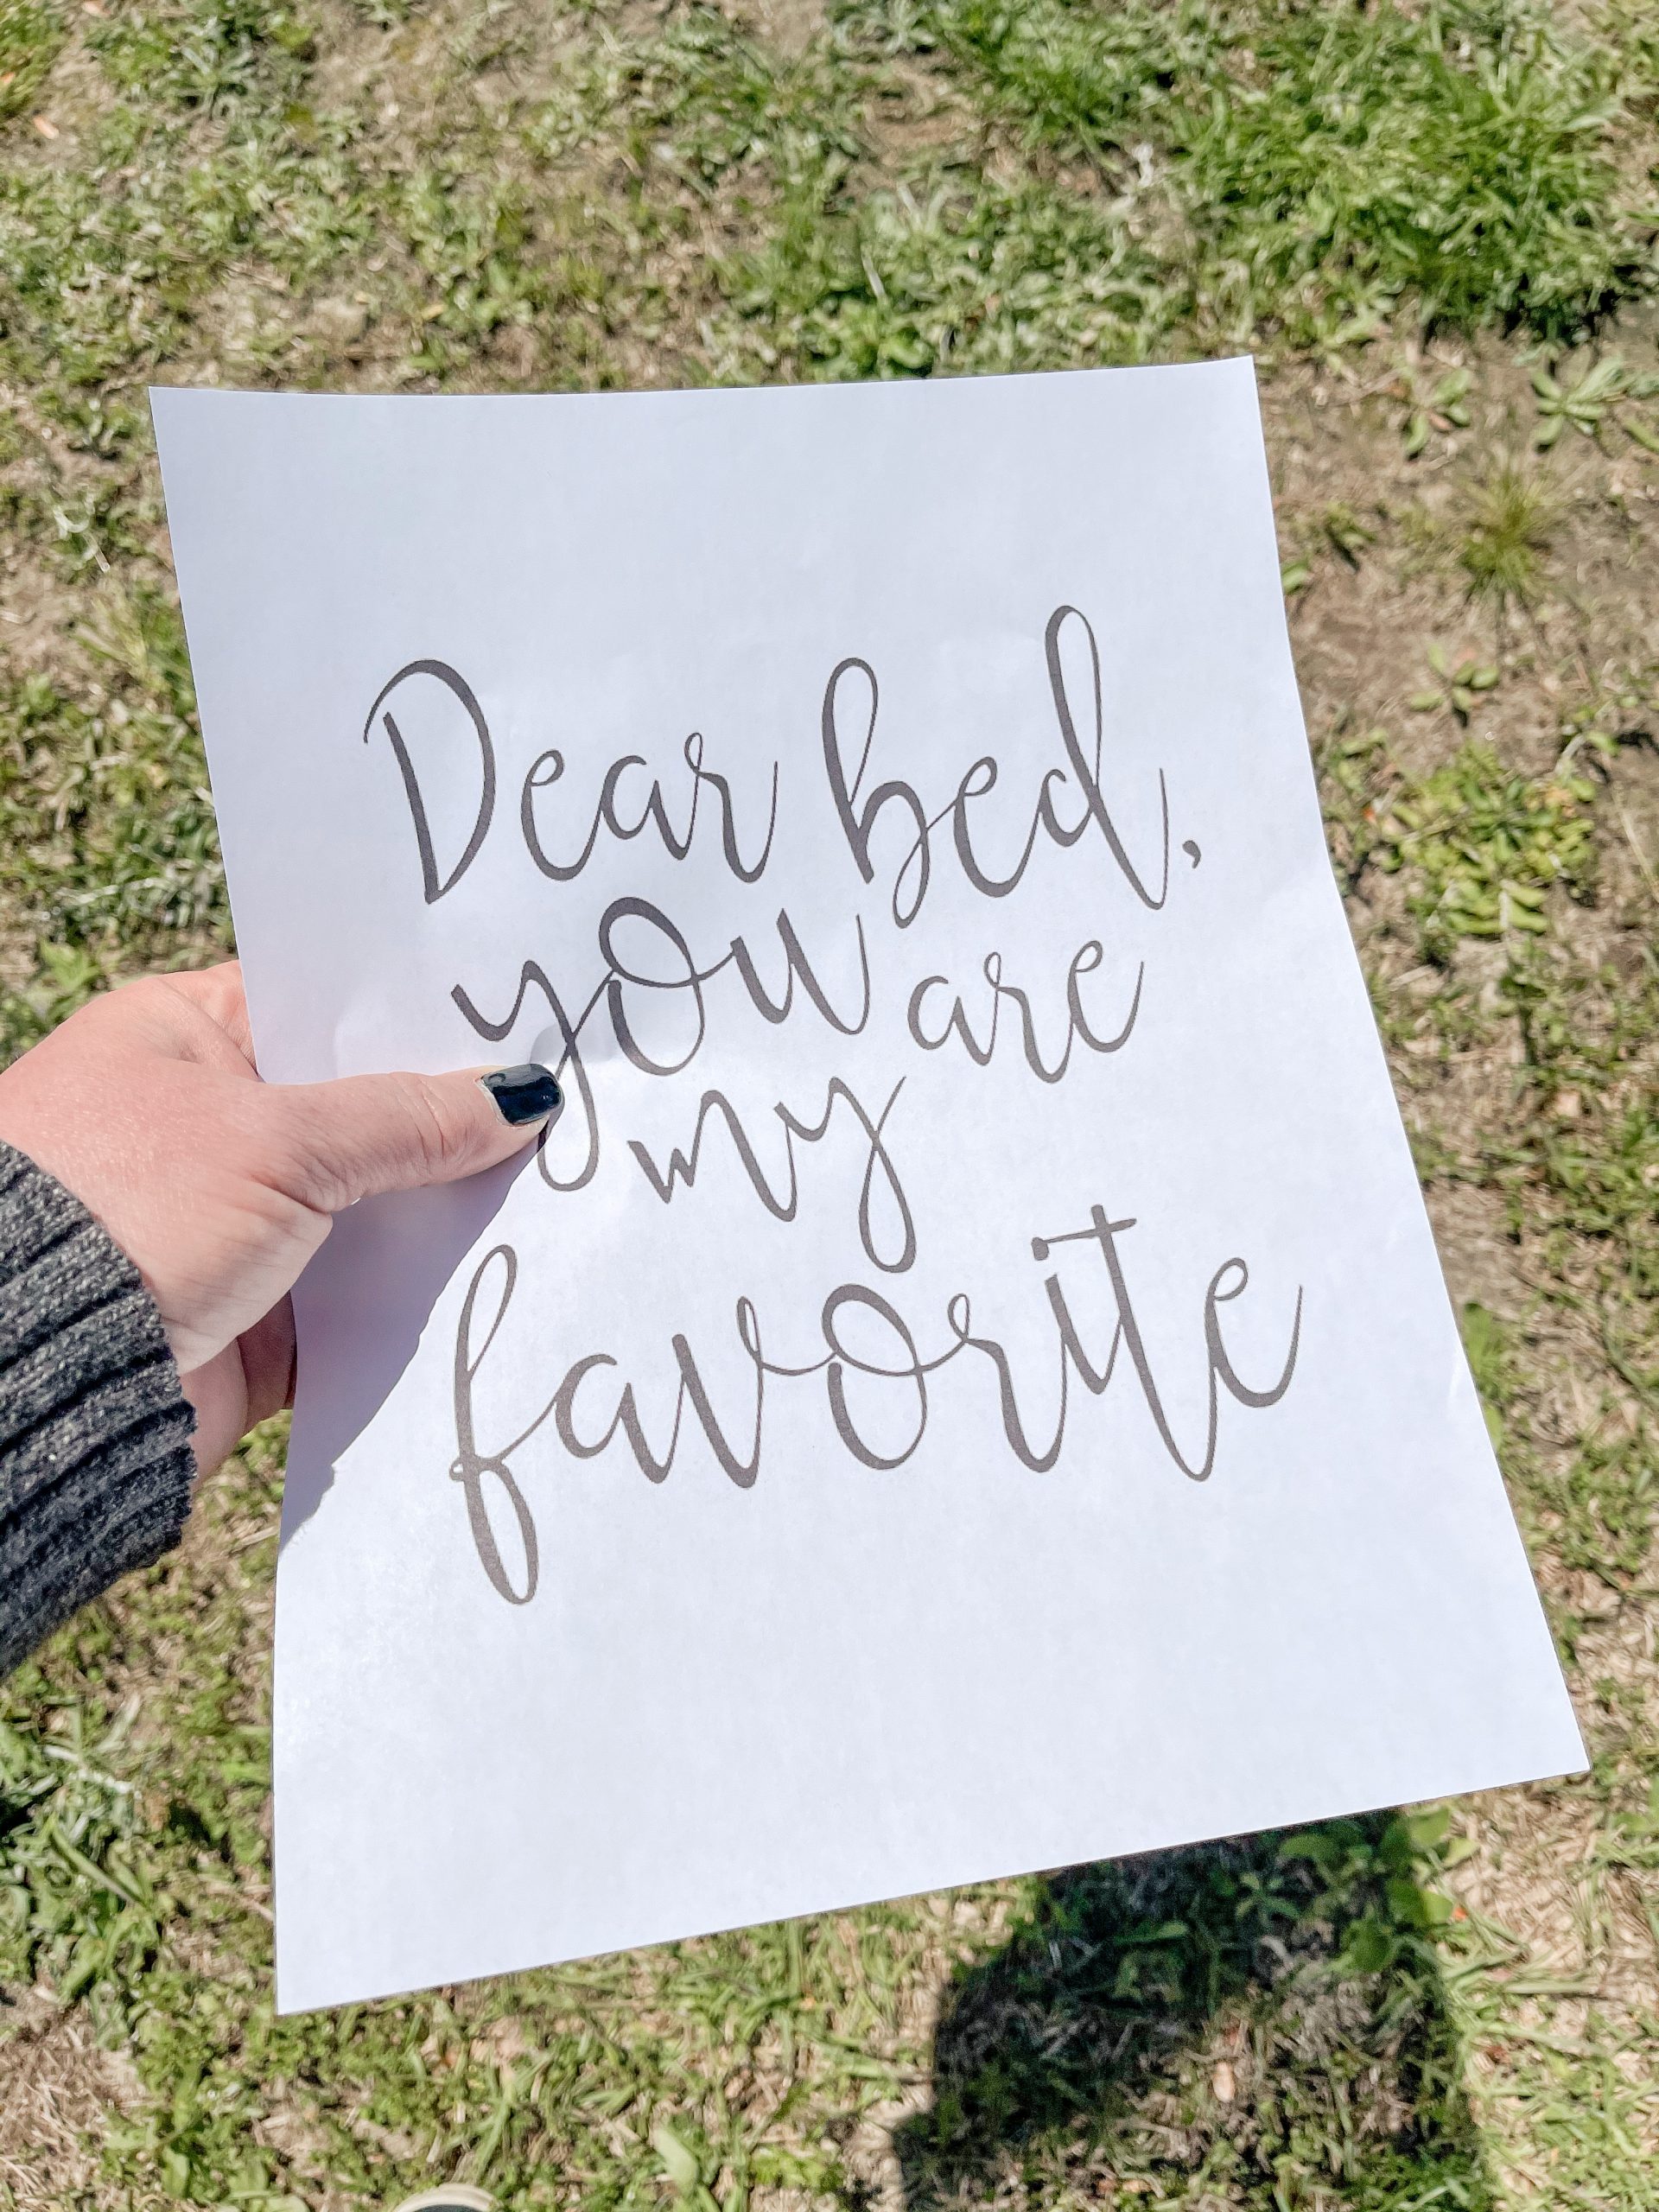 Dear bed,
you are
my
favorite